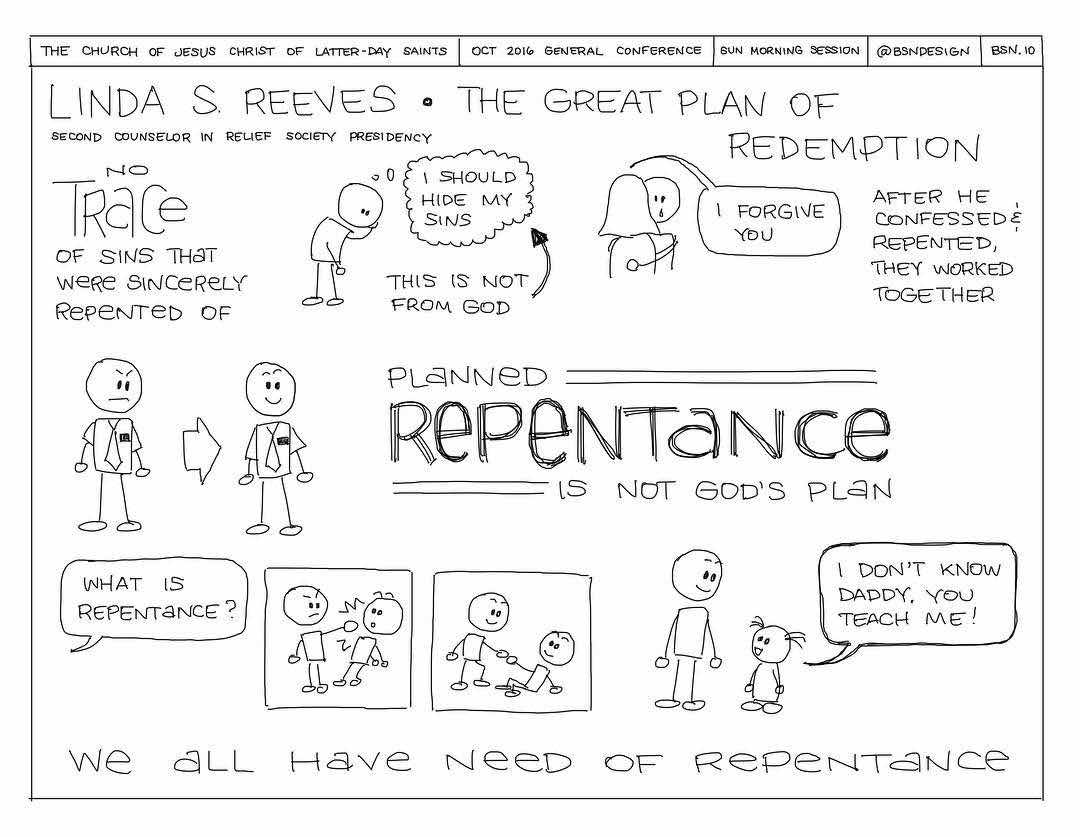 THE CHURCH OF JESUS CHRIST OF LATTER-DAY SAINTS
OCT 2016 GENERAL CONFERENCE
SUN MORNING SESSION
@BSNDESIGN
BSN.10
LINDA S. REEVES • THE GREAT PLAN OF
REDEMPTION
SECOND COUNSELOR IN RELIEF SOCIETY PRESIDENCY
NO
TRaCe
OF SINS THaT
WeRe SINCeReLY
RePeNTeD OF
I SHOULD
HIDE MY
SINS
THIS IS NOT
FROM GOD
I FORGIVE
YOU
AFTER HE
CONFESSED &
REPENTED,
THEY WORKED
TOGETHER
PLaNNeD
RePeNTaNce
IS NOT GOD'S PLaN
WHAT IS
REPENTANCE?
I DON'T KNOW
DADDY, YOU
TEACH ME!
We aLL Have NeeD OF RePeNTaNCe